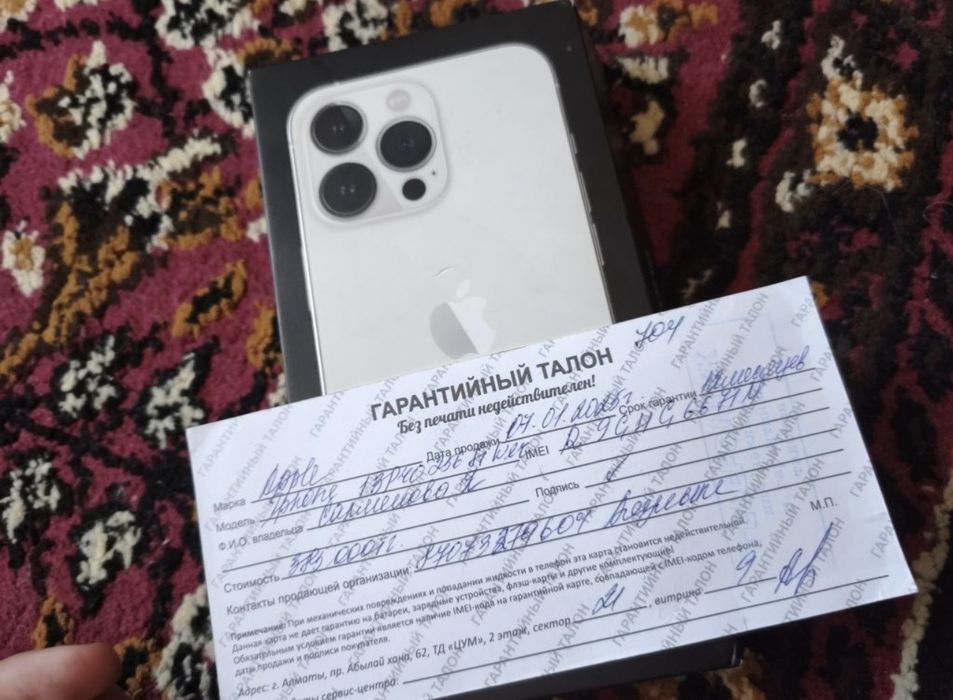 704
ГАРАНТИЙНЫЙ ТАЛОН
Без печати недействителен!
Дата продажи 07.01.2025г. Срок гарантии 12 месяцев
Марка Apple
IMEI
Модель iPhone 13 Pro 256
Ф.И.О. владельца
Подпись
Стоимость 385.000тг.
М.П.
Контакты продающей организации: 87073279604
Примечание: При механических повреждениях и попадании жидкости в телефон эта карта становится недействительной.
Данная карта не дает гарантию на батареи, зарядные устройства, флэш-карты и другие комплектующие!
Обязательным условием гарантии является наличие IMEI-кода на гарантийной карте, совпадающей с IMEI-кодом телефона,
даты продажи и подписи покупателя.
Адрес: г. Алматы, пр. Абылай хана, 62, ТД «ЦУМ», 2 этаж, сектор 21, витрина 9
сервис-центр: